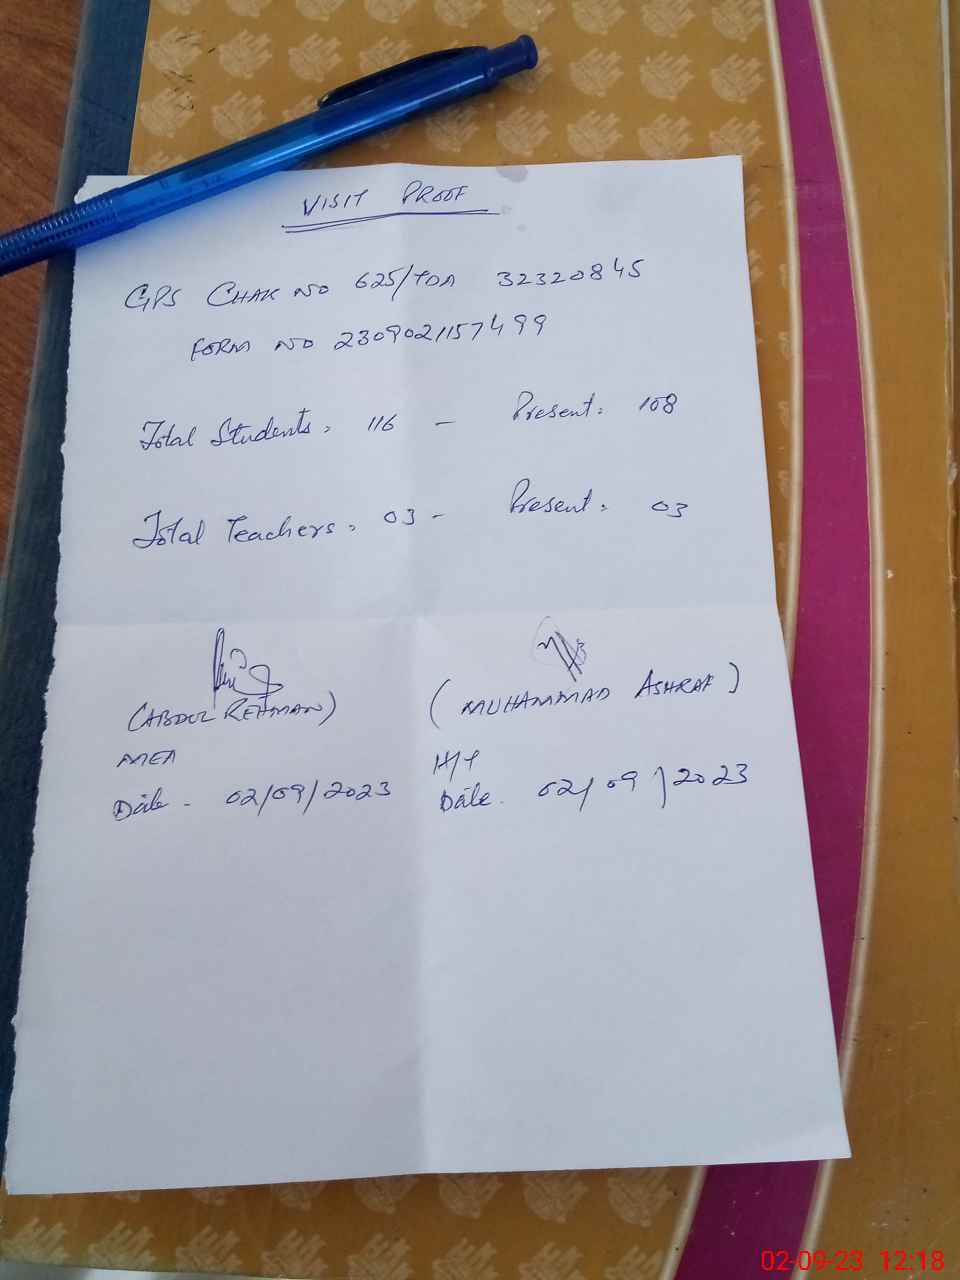 VISIT PROOF
GPS CHAK NO 625/TDA 32320845
FORM NO 2309021157499
Total Students: 116 - Present: 108
Total Teachers: 03 - Present: 03
(ABDUL REHMAN) (MUHAMMAD ASHRAF)
MEA H/T
Date - 02/09/2023 Date - 02/09/2023
02-09-23 12:18